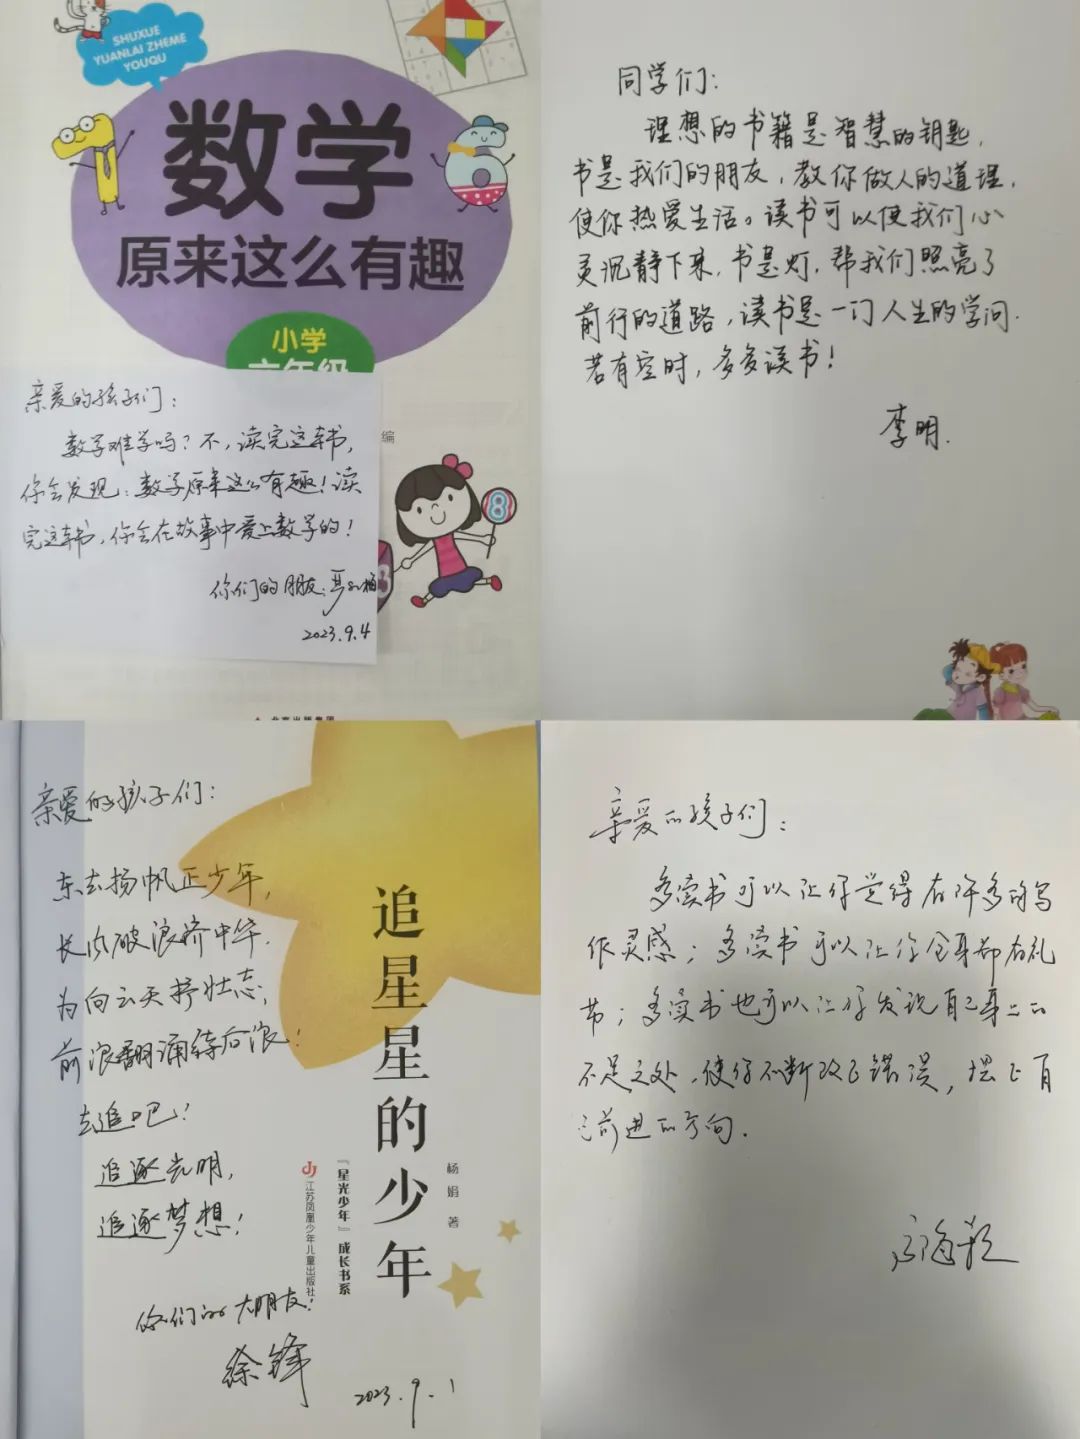 SHUXUE
YUANLAI ZHEME
YOUQU
数学
原来这么有趣
小学
六年级
编
8
亲爱的孩子们：
数学难学吗？不，读完这本书，
你会发现：数学原来这么有趣！读
完这本书，你会在故事中爱上数学的！
你们的朋友：
2023.9.4
北京出版集团
同学们：
理想的书籍是智慧的钥匙，
书是我们的朋友，教你做人的道理，
使你热爱生活。读书可以使我们心
灵沉静下来，书是灯，帮我们照亮了
前行的道路，读书是一门人生的学问.
若有空时，多多读书！
李明.
亲爱的孩子们：
东去扬帆正少年，
长风破浪济中华.
为向云天抒壮志，
前浪翻涌续后浪！
去追吧！
追逐光明，
追逐梦想！
你们的大朋友！
徐锋
2023.9.1
追星星的少年
杨娟 著
『星光少年』成长书系
江苏凤凰少年儿童出版社
亲爱的孩子们：
多读书可以让你觉得有许多的写
作灵感；多读书可以让你全身都有礼
节；多读书也可以让你发现自己身上的
不足之处，使你不断改正错误，摆正自
己前进的方向.